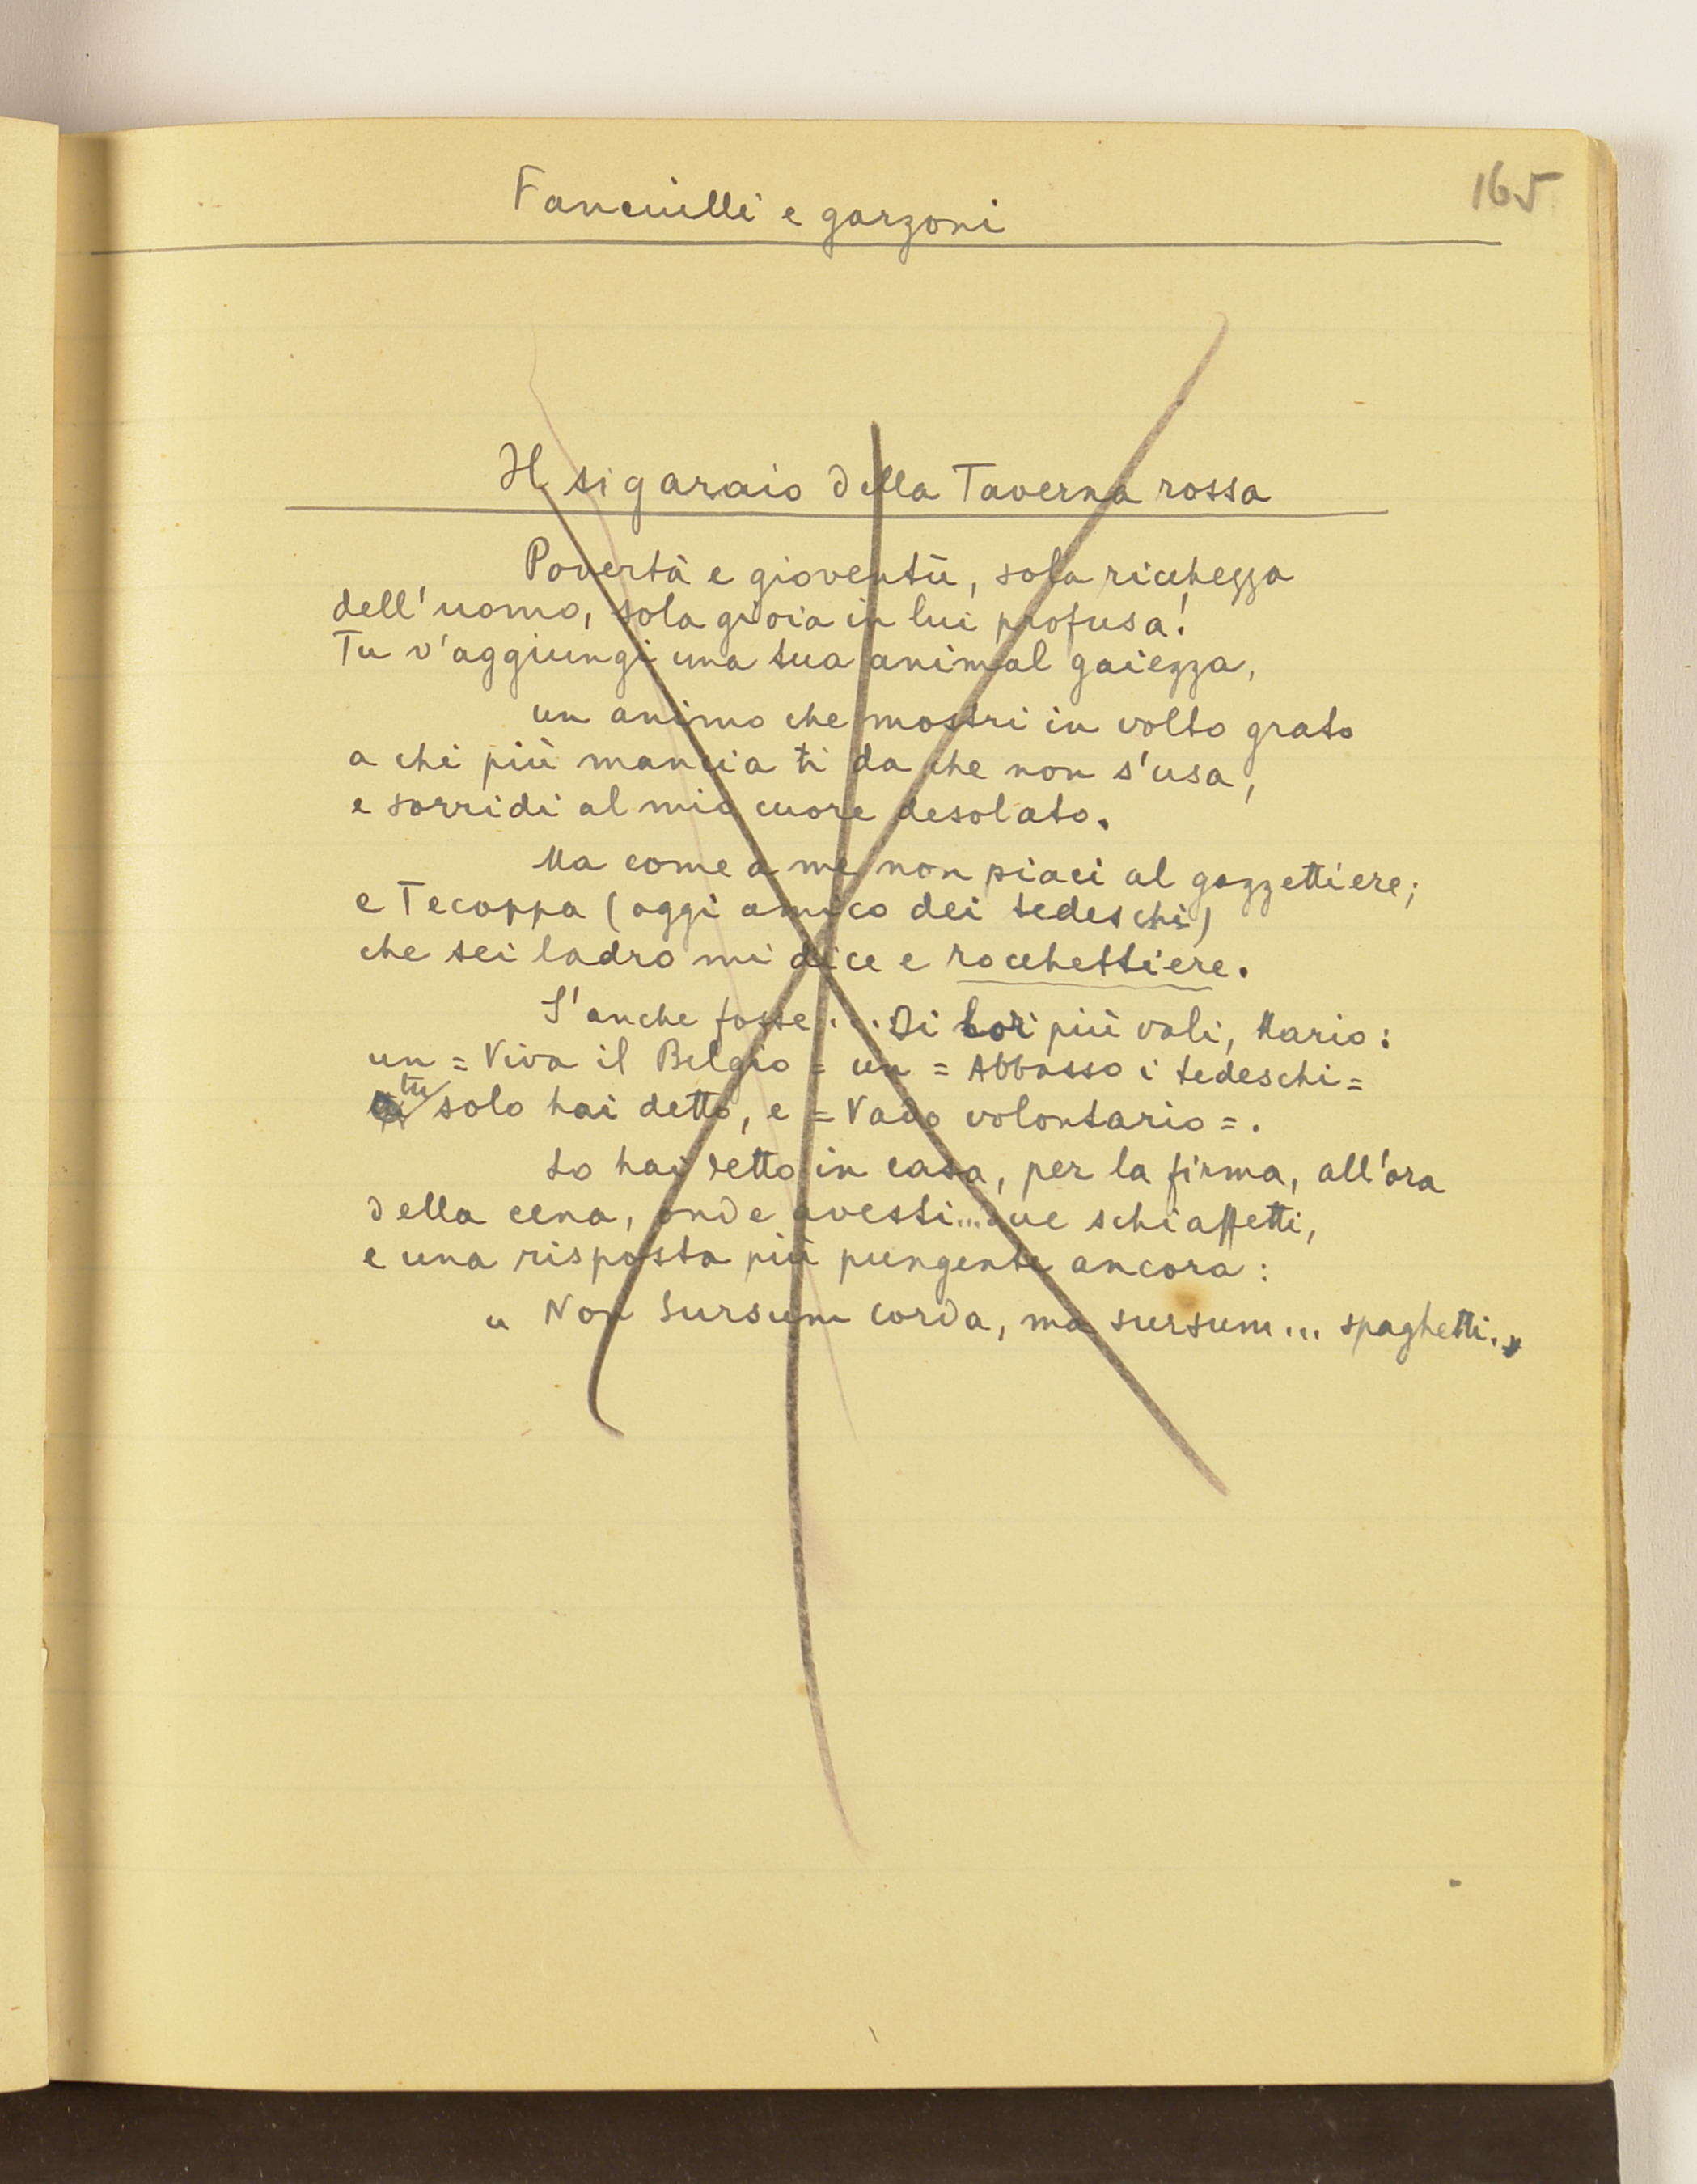 165
Fanciulli e garzoni
Il sigaraio della Taverna rossa
Povertà e gioventù, sola ricchezza
dell'uomo, sola gioia in lui profusa!
Tu v'aggiungi una tua animal gaiezza,
un animo che mostri in volto grato
a chi più mancia ti da che non s'usa,
e sorridi al mio cuore desolato.
Ma come a me non piaci al gazzettiere;
e Tecoppa (oggi amico dei tedeschi)
che sei ladro mi dice e rocchettiere.
S'anche fosse... Di lor più vali, Mario:
un = Viva il Belgio = un = Abbasso i tedeschi =
tu solo hai detto, e = Vado volontario =.
Lo hai detto in casa, per la firma, all'ora
della cena, onde avesti... due schiaffetti,
e una risposta più pungente ancora:
" Non Sursum corda, ma sursum... spaghetti. "